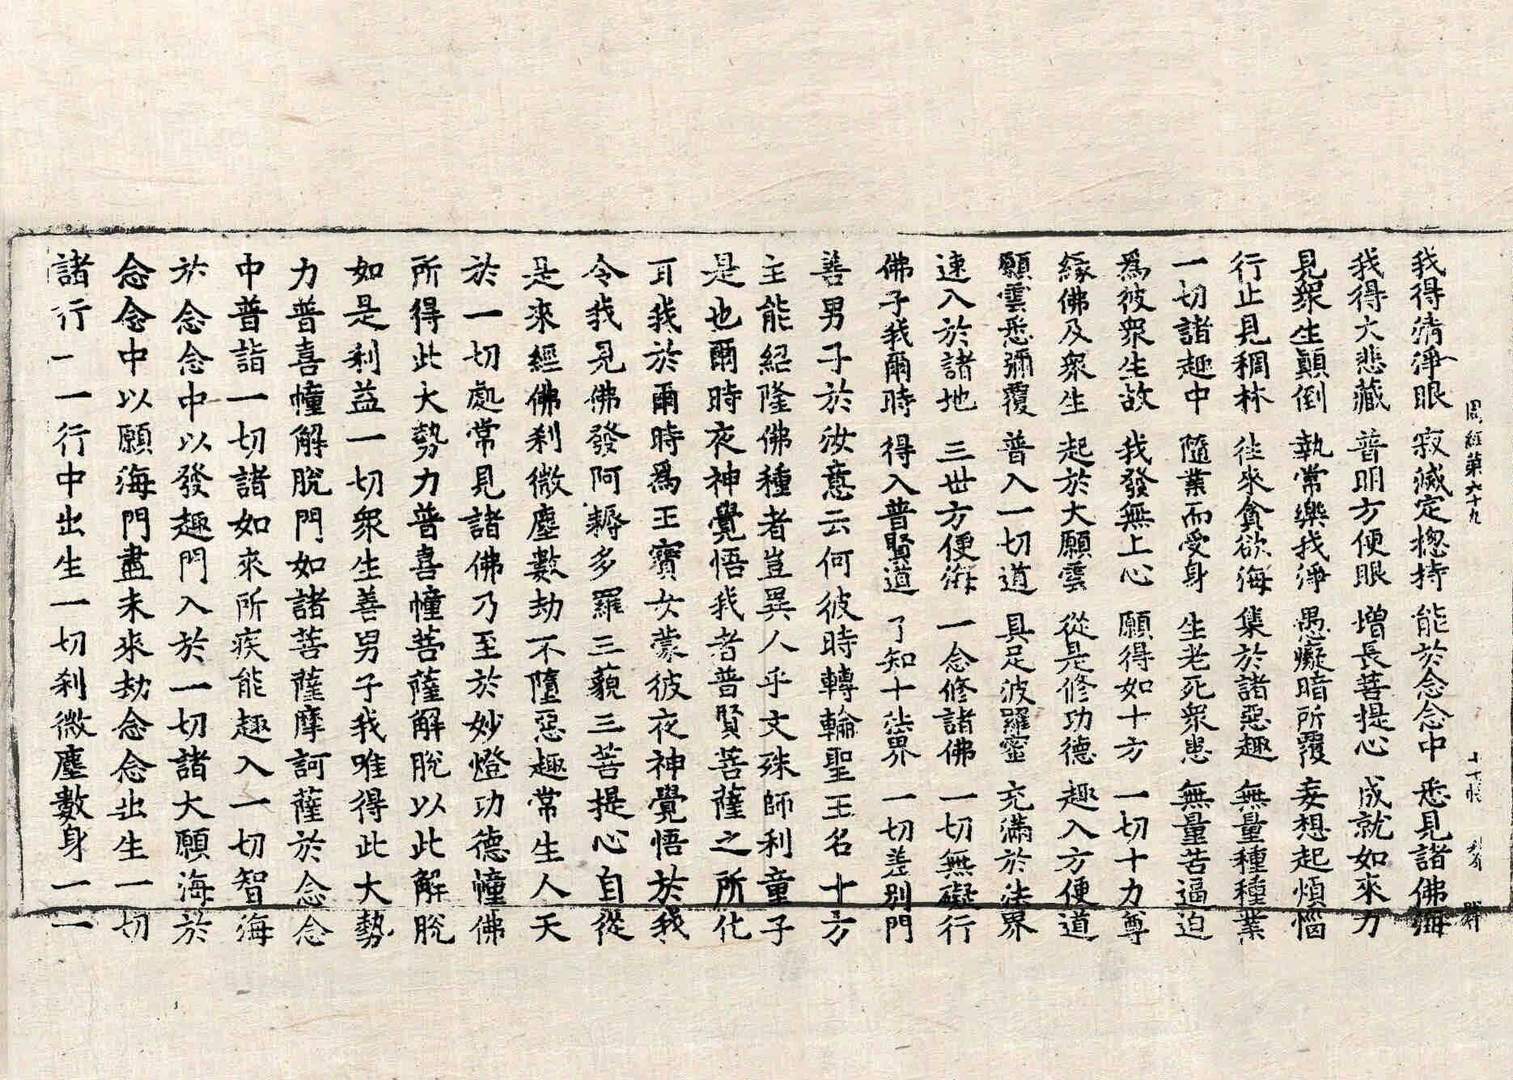 周經第六十九 十七張 群
我得清淨眼 寂滅定捴持 能於念念中 悉見諸佛海
我得大悲藏 普明方便眼 增長菩提心 成就如來力
見衆生顚倒 執常樂我淨 愚癡暗所覆 妄想起煩惱
行止見稠林 往來貪欲海 集於諸惡趣 無量種種業
一切諸趣中 隨業而受身 生老死衆患 無量苦逼迫
爲彼衆生故 我發無上心 願得如十方 一切十力尊
緣佛及衆生 起於大願雲 從是修功德 趣入方便道
願雲悉彌覆 普入一切道 具足波羅蜜 充滿於法界
速入於諸地 三世方便海 一念修諸佛 一切無礙行
佛子我爾時 得入普賢道 了知十法界 一切差別門
善男子於汝意云何彼時轉輪聖王名十方
主能紹隆佛種者豈異人乎文殊師利童子
是也爾時夜神覺悟我者普賢菩薩之所化
耳我於爾時爲王寶女蒙彼夜神覺悟於我
令我見佛發阿耨多羅三藐三菩提心自從
是來經佛刹微塵數劫不墮惡趣常生人天
於一切處常見諸佛乃至於妙燈功德幢佛
所得此大勢力普喜幢菩薩解脫以此解脫
如是利益一切衆生善男子我唯得此大勢
力普喜幢解脫門如諸菩薩摩訶薩於念念
中普詣一切諸如來所疾能趣入一切智海
於念念中以發趣門入於一切諸大願海於
念念中以願海門盡未來劫念念出生一切
諸行一一行中出生一切刹微塵數身一一